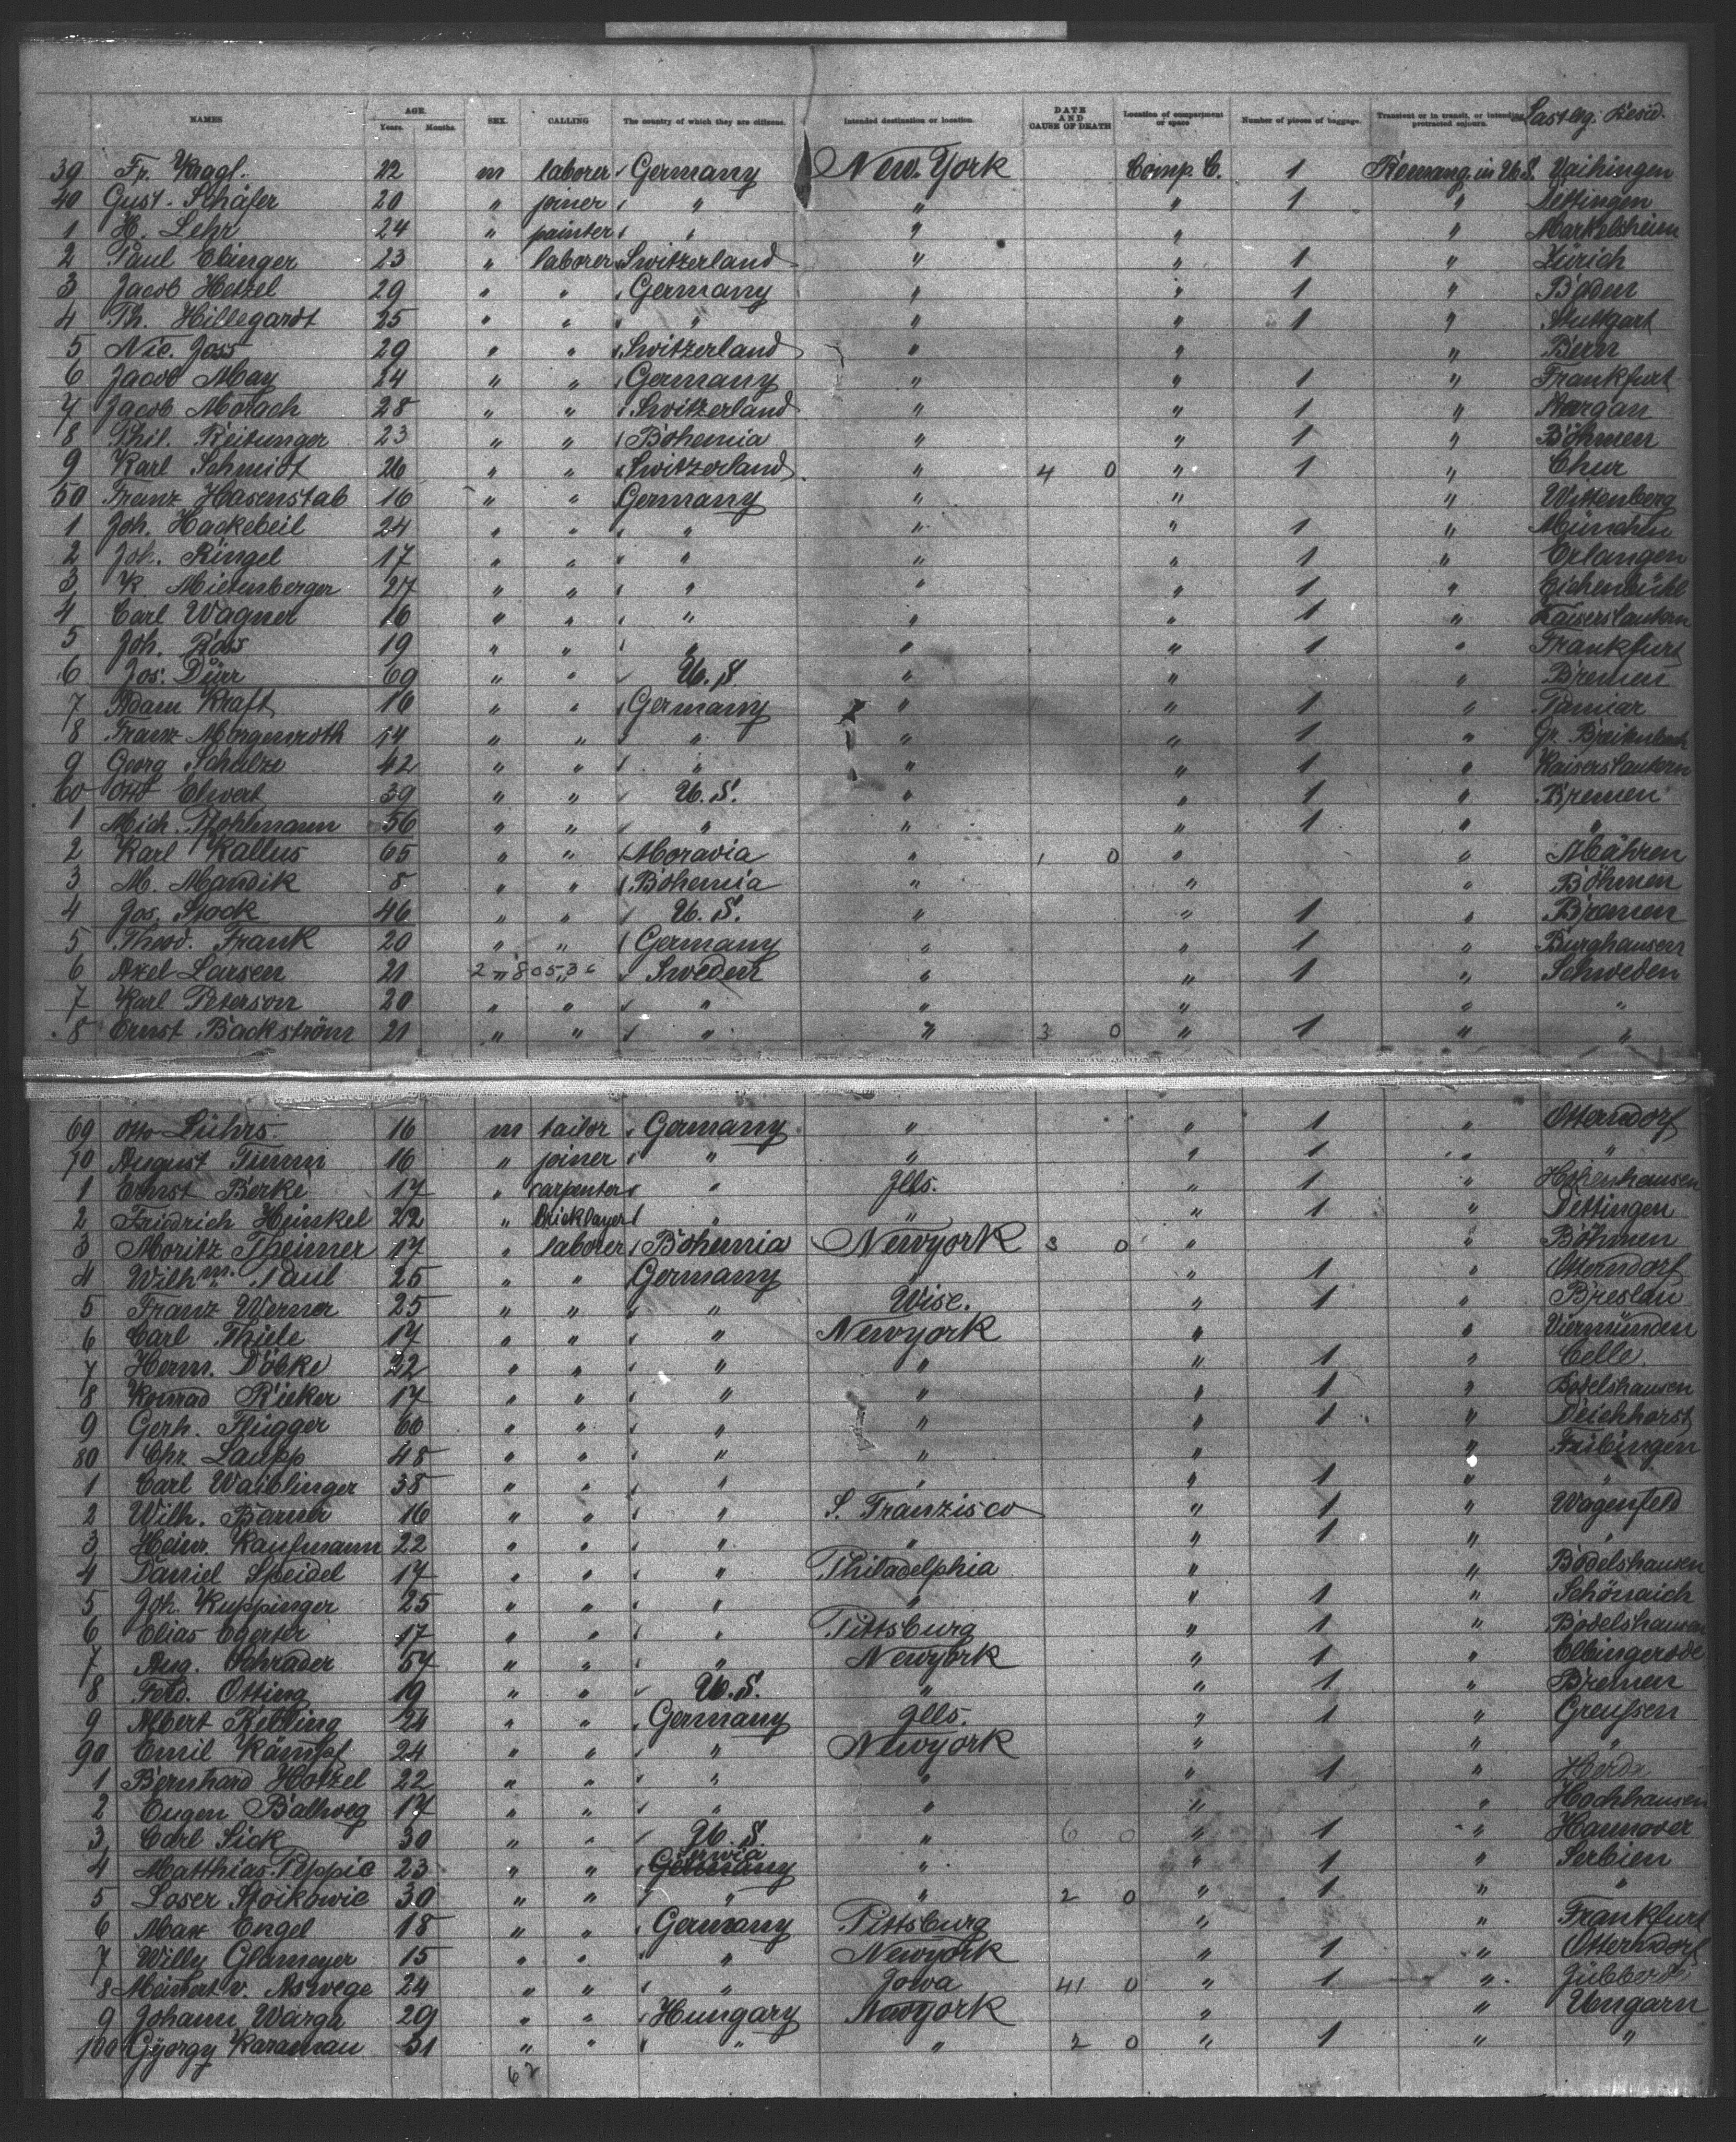 NAMES AGE. Years. Months. SEX. CALLING The country of which they are citizens. Intended destination or location. DATE AND CAUSE OF DEATH Location of compartment or space Number of pieces of baggage. Transient or in transit, or intending protracted sojourn. Last leg. Resid.
39 Fr. Kragl. 22 m laborer Germany New York Comp. C. 1 in U.S. Vaihingen
40 Gust. Schäfer 20 " joiner " " " 1 " Dettingen
1 H. Lehr 24 " painter " " " " Markelsheim
2 Paul Ebinger 23 " laborer Switzerland " " 1 " Zürich
3 Jacob Hetzel 29 " " Germany " " 1 " Baden
4 Th. Hillegardt 25 " " " " " 1 " Stuttgart
5 Nic. Joss 29 " " Switzerland " " " Bern
6 Jacob May 24 " " Germany " " 1 " Frankfurt
7 Jacob Morach 28 " " Switzerland " " 1 " Aargau
8 Phil. Reitunger 23 " " Bohemia " " 1 " Böhmen
9 Karl Schmidt 26 " " Switzerland " 4 0 " 1 " Chur
50 Franz Hasenstab 16 " " Germany " " " Wittenberg
1 Joh. Hackebeil 24 " " " " " 1 " München
2 Joh. Ringel 17 " " " " " 1 " Erlangen
3 K. Mietenberger 27 " " " " " 1 " Eichenbühl
4 Carl Wagner 16 " " " " " 1 " Kaiserslautern
5 Joh. Ross 19 " " " " " 1 " Frankfurt
6 Jos. Dürr 69 " " U.S. " " " Bremen
7 Adam Kraft 16 " " Germany " " 1 "
8 Franz Morgenroth 14 " " " " " 1 " Gr. Breitenbach
9 Georg Schulze 42 " " " " " 1 " Kaiserslautern
60 Otto Elwert 39 " " U.S. " " 1 " Bremen
1 Mich. Pohlmann 56 " " " " " 1 " "
2 Karl Kallus 65 " " Moravia " 1 0 " " Mähren
3 M. Mandik 8 " " Bohemia " " " Böhmen
4 Jos. Stock 46 " " U.S. " " 1 " Bremen
5 Theod. Frank 20 " " Germany " " 1 " Burghausen
6 Axel Larsen 21 " " Sweden " " 1 " Schweden
7 Karl Peterson 20 " " " " " " "
8 Ernst Backström 21 " " " " 3 0 " 1 " "
69 Otto Lührs 16 m tailor Germany " " 1 " Otterndorf
70 August Timm 16 " joiner " " " 1 " "
1 Ernst Berke 17 " carpenter " Ills. " 1 " Hohenhausen
2 Friedrich Heinkel 22 " bricklayer " " " 1 " Dettingen
3 Moritz Theimer 17 " laborer Bohemia Newyork 3 0 " " Böhmen
4 Wilhm. Paul 25 " " Germany " " 1 " Otterndorf
5 Franz Werner 25 " " " Wisc. " 1 " Breslau
6 Carl Thiele 17 " " " Newyork " " Viermünden
7 Herm. Döbke 32 " " " " " 1 " Celle.
8 Konrad Rieker 17 " " " " " 1 " Bodelshausen
9 Gerh. Flügger 60 " " " " " 1 " Deichhorst
80 Chr. Laupp 48 " " " " " "
1 Carl Waiblinger 38 " " " " " 1 " "
2 Wilh. 16 " " " S. Franzisco " 1 " Wagenfeld
3 Heinr. Kaufmann 22 " " " " " 1 " "
4 Daniel Speidel 17 " " " Philadelphia " " Bodelshausen
5 Joh. Kuppinger 25 " " " " " 1 " Schönaich
6 Elias Egerter 17 " " " Pittsburg " 1 " Bodelshausen
7 Aug. Schrader 57 " " " Newyork " 1 " Elbingerode
8 Ferd. Otting 19 " " U.S. " " 1 " Bremen
9 Albert Rebling 24 " " Germany Ills. " 1 " Greußen
90 Emil Kämpf 24 " " " Newyork " " "
1 Bernhard Hotzel 22 " " " " " 1 "
2 Eugen Ballweg 17 " " " " " " Hochhausen
3 Carl Sick 30 " " U.S. " 6 0 " 1 " Hannover
4 Matthias Peppic 23 " " Servia Germany " " 1 " Serbien
5 Loser Stoikowic 30 " " " " 2 0 " 1 " "
6 Max Engel 18 " " Germany Pittsburg " " Frankfurt
7 Willy Glameyer 15 " " " Newyork " 1 " Otterndorf
8 Meinert v. Aswege 24 " " " Iowa 41 0 " 1 " Jübberde
9 Johann Warga 29 " " Hungary Newyork " " Ungarn
100 György Karaman 31 " " " " 2 0 " 1 " "
62